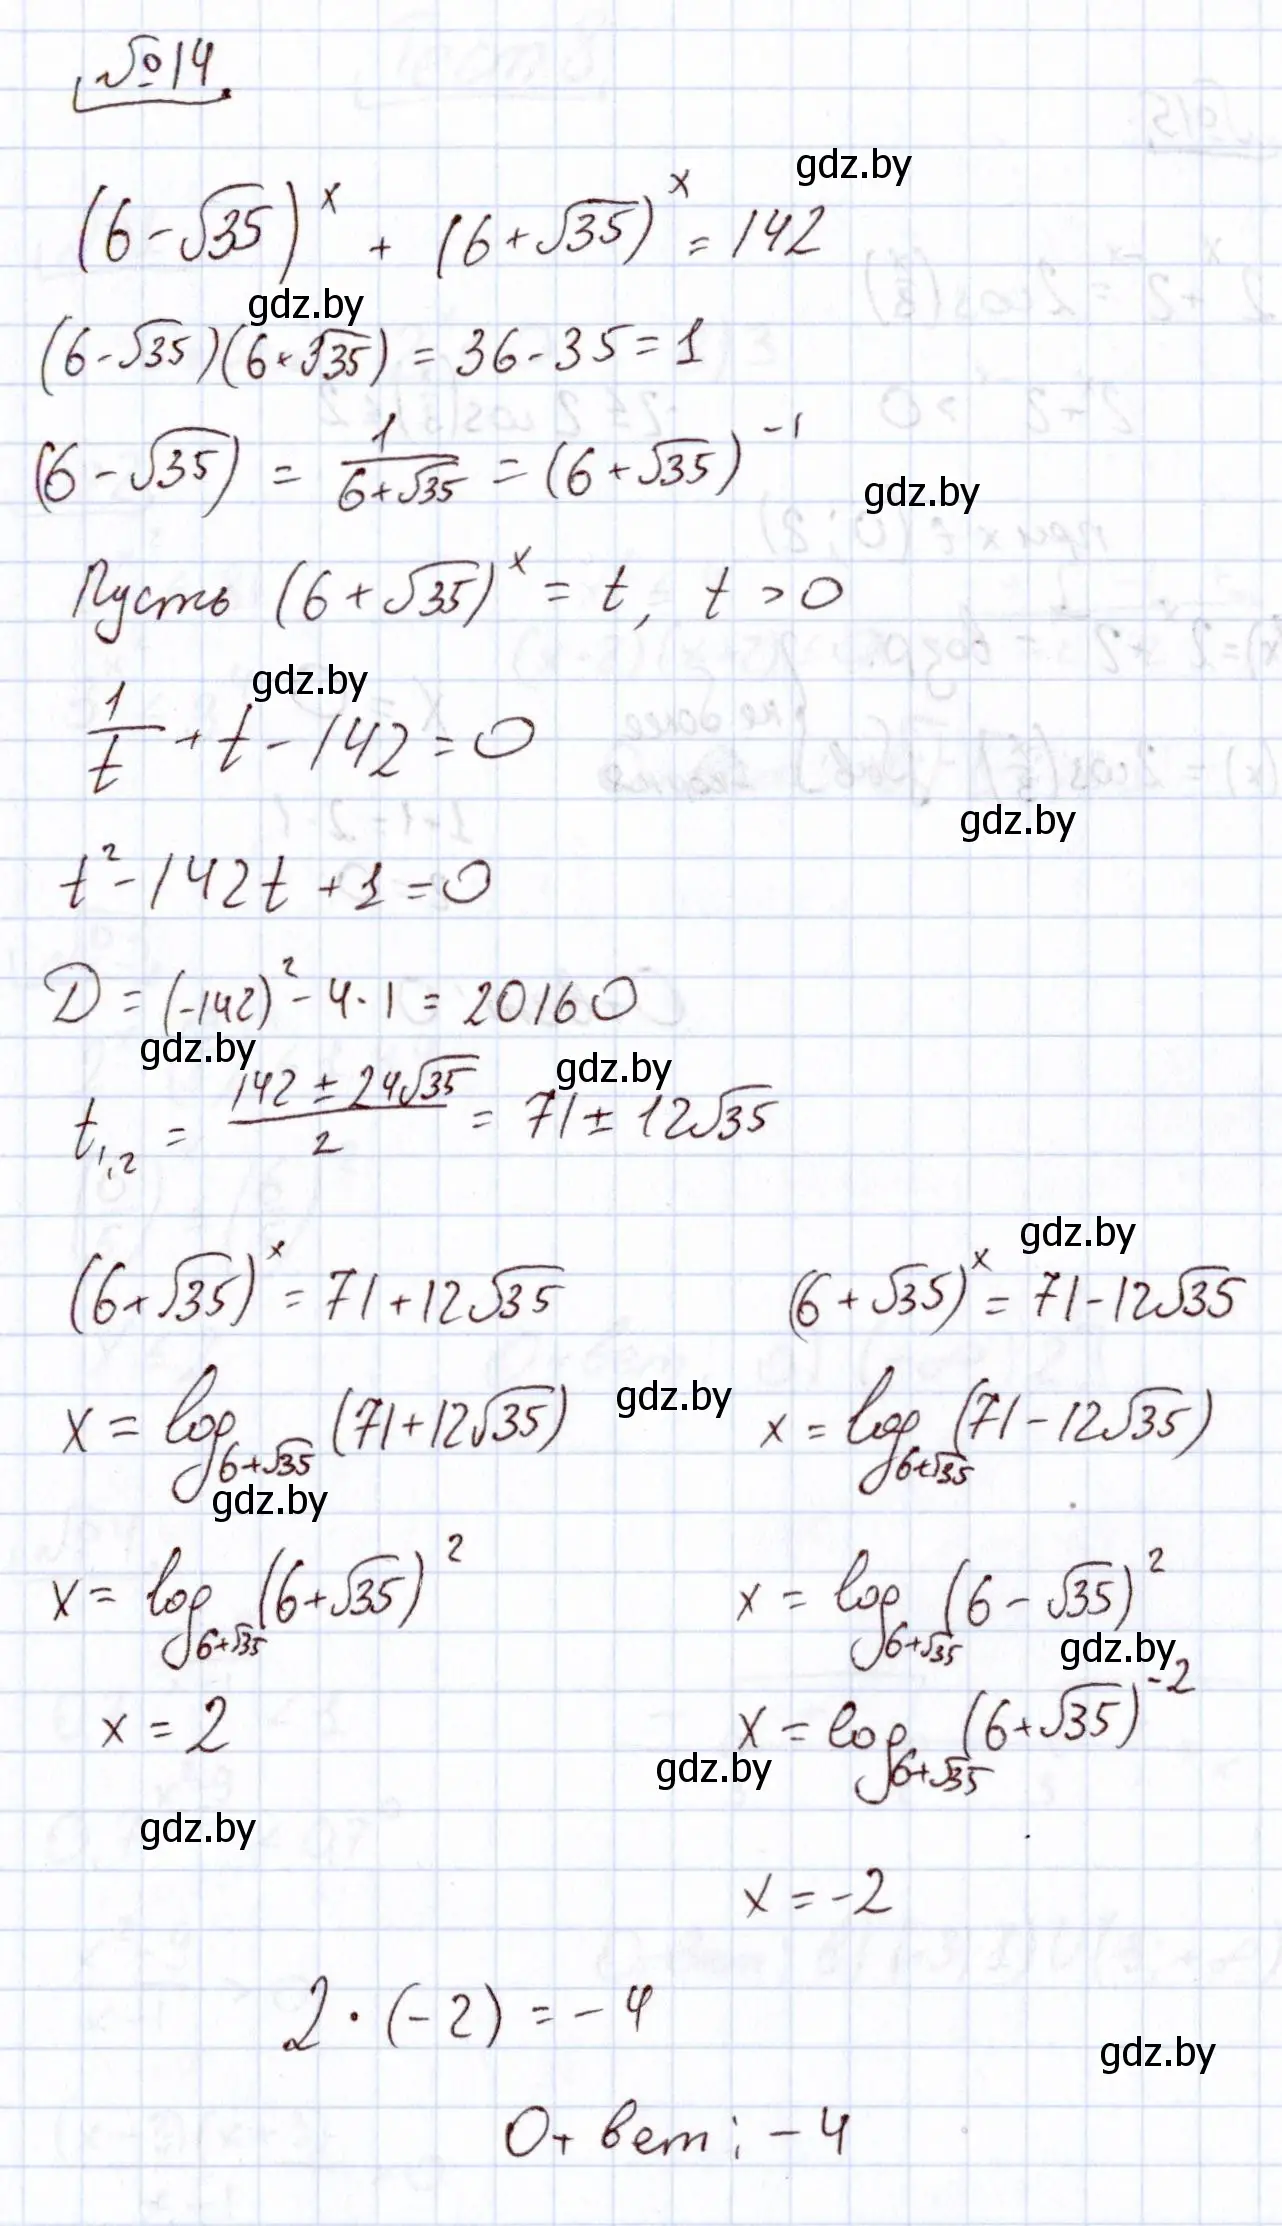 №14
gdz.by
(6-√35)^x + (6+√35)^x = 142
gdz.by
(6-√35)(6+√35) = 36-35 = 1
(6-√35) = 1/(6+√35) = (6+√35)^-1
gdz.by
Пусть (6+√35)^x = t, t > 0
gdz.by
1/t + t - 142 = 0
gdz.by
t² - 142t + 1 = 0
D = (-142)² - 4·1 = 20160
gdz.by gdz.by
t1,2 = (142 ± 24√35)/2 = 71 ± 12√35
gdz.by
(6+√35)^x = 71+12√35 (6+√35)^x = 71-12√35
gdz.by
x = log_6+√35 (71+12√35) x = log_6+√35 (71-12√35)
gdz.by
x = log_6+√35 (6+√35)² x = log_6+√35 (6-√35)²
gdz.by
x = 2 x = log_6+√35 (6+√35)^-2
gdz.by
gdz.by
x = -2
2·(-2) = -4
gdz.by
Ответ: -4